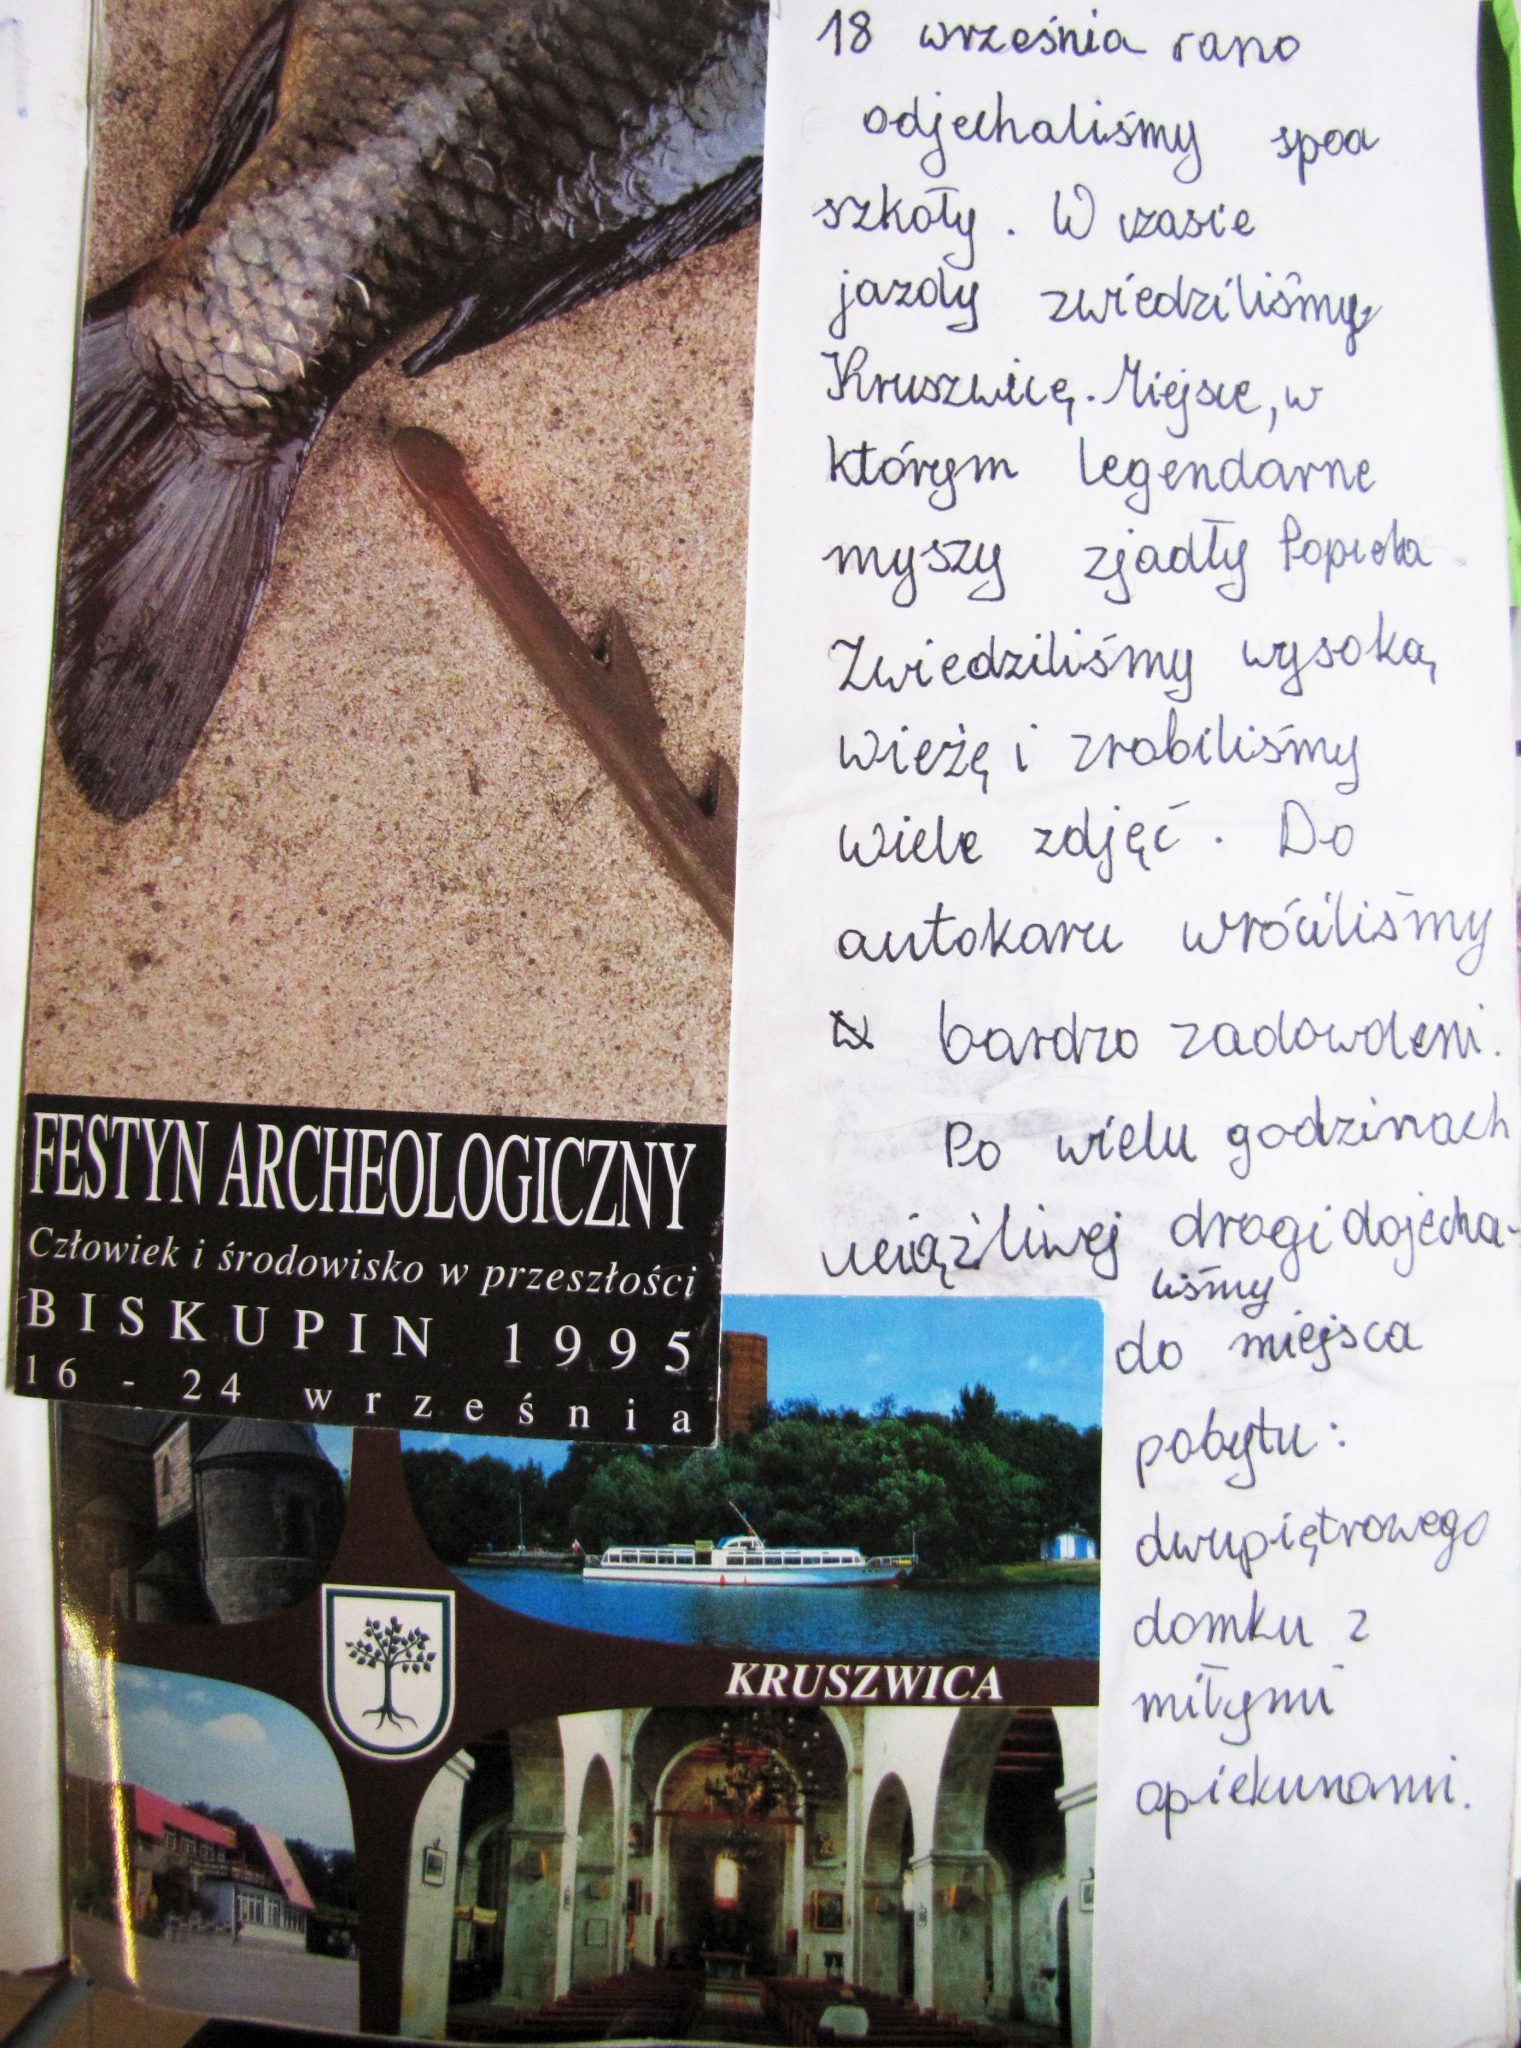 FESTYN ARCHEOLOGICZNY
Człowiek i środowisko w przeszłości
BISKUPIN 1995
16 - 24 września
KRUSZWICA
18 września rano
odjechaliśmy spoa
szkoły. W czasie
jazdy zwiedziliśmy
Kruszwicę. Miejsce, w
którym legendarne
myszy zjadły Popiela
Zwiedziliśmy wysoką
wieżę i zrobiliśmy
wiele zdjęć. Do
autokaru wróciliśmy
bardzo zadowoleni.
Po wielu godzinach
uciążliwej drogi dojecha-
liśmy
do miejsca
pobytu:
dwupiętrowego
domku z
miłymi
opiekunami.